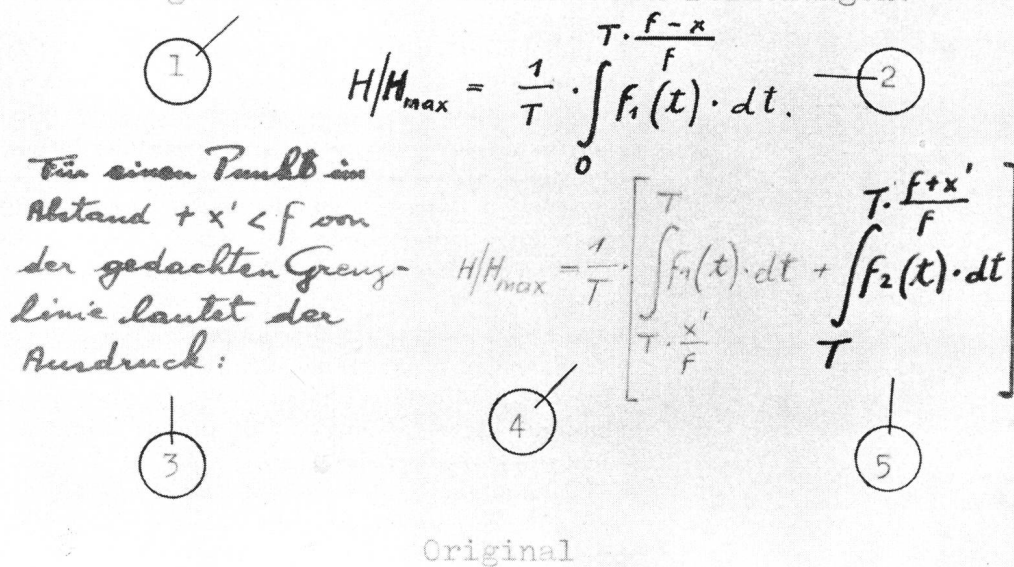 1
H/H_max = 1/T · ∫_0^{T · (f - x)/f} f₁(t) · dt.
2
Für einen Punkt im
Abstand + x' < f von
der gedachten Grenz-
linie lautet der
Ausdruck:
H/H_max = 1/T · [ ∫_{T · x'/f}^{T} f₁(t) · dt + ∫_T^{T · (f + x')/f} f₂(t) · dt ]
3
4
5
Original